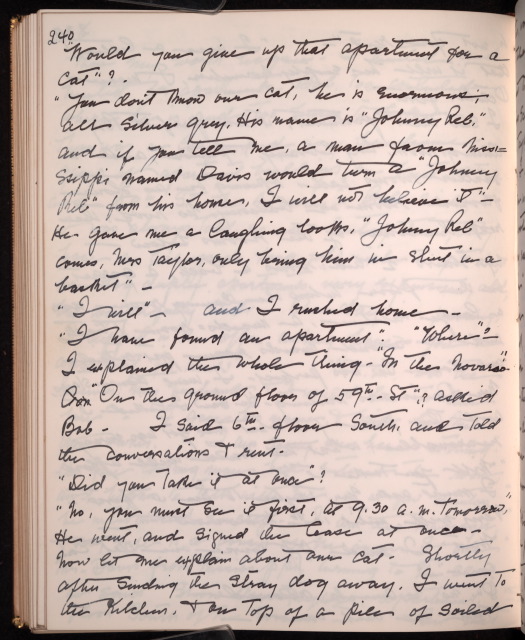 240
"Would you give up that apartment for a
cat"?.
"You don't know our cat, he is enormous,
all silver grey. His name is "Johnny Reb,"
and if you tell me, a man from Missi=
ssippi named Davis would turn a "Johnny
Reb" from his home, I will not believe it"-
He gave me a laughing look, "Johnny Reb"
comes, Mrs Taylor, only bring him in shut in a
basket" -
"I will" - and I rushed home -
"I have found an apartment". "Where"?
I explained the whole thing - "In the Navarro"
"On the ground floor of 59th - St"? asked
Bob - I said 6th - floor South. and told
the conversations & rent.
"Did you take it at once"?
"No, you must see it first, at 9.30 a.m. tomorrow,"
He went, and signed the lease at once -
Now let me explain about our cat - Shortly
after sending the stray dog away. I went to
the kitchen, & on top of a pile of soiled